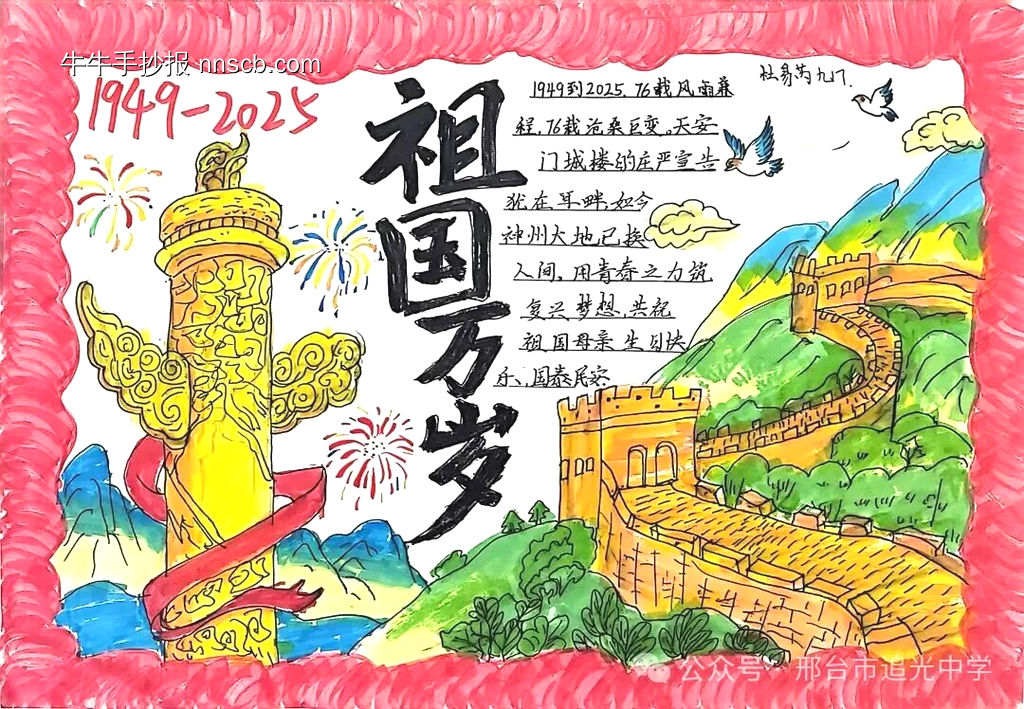 牛牛手抄报 nnscb.com
1949-2025
祖国万岁
1949到2025，76载风雨兼
程，76载沧桑巨变。天安
门城楼的庄严宣告
犹在耳畔，如今
神州大地已换
人间，用青春之力筑
复兴梦想，共祝
祖国母亲生日快
乐，国泰民安
九7.
公众号·邢台市追光中学